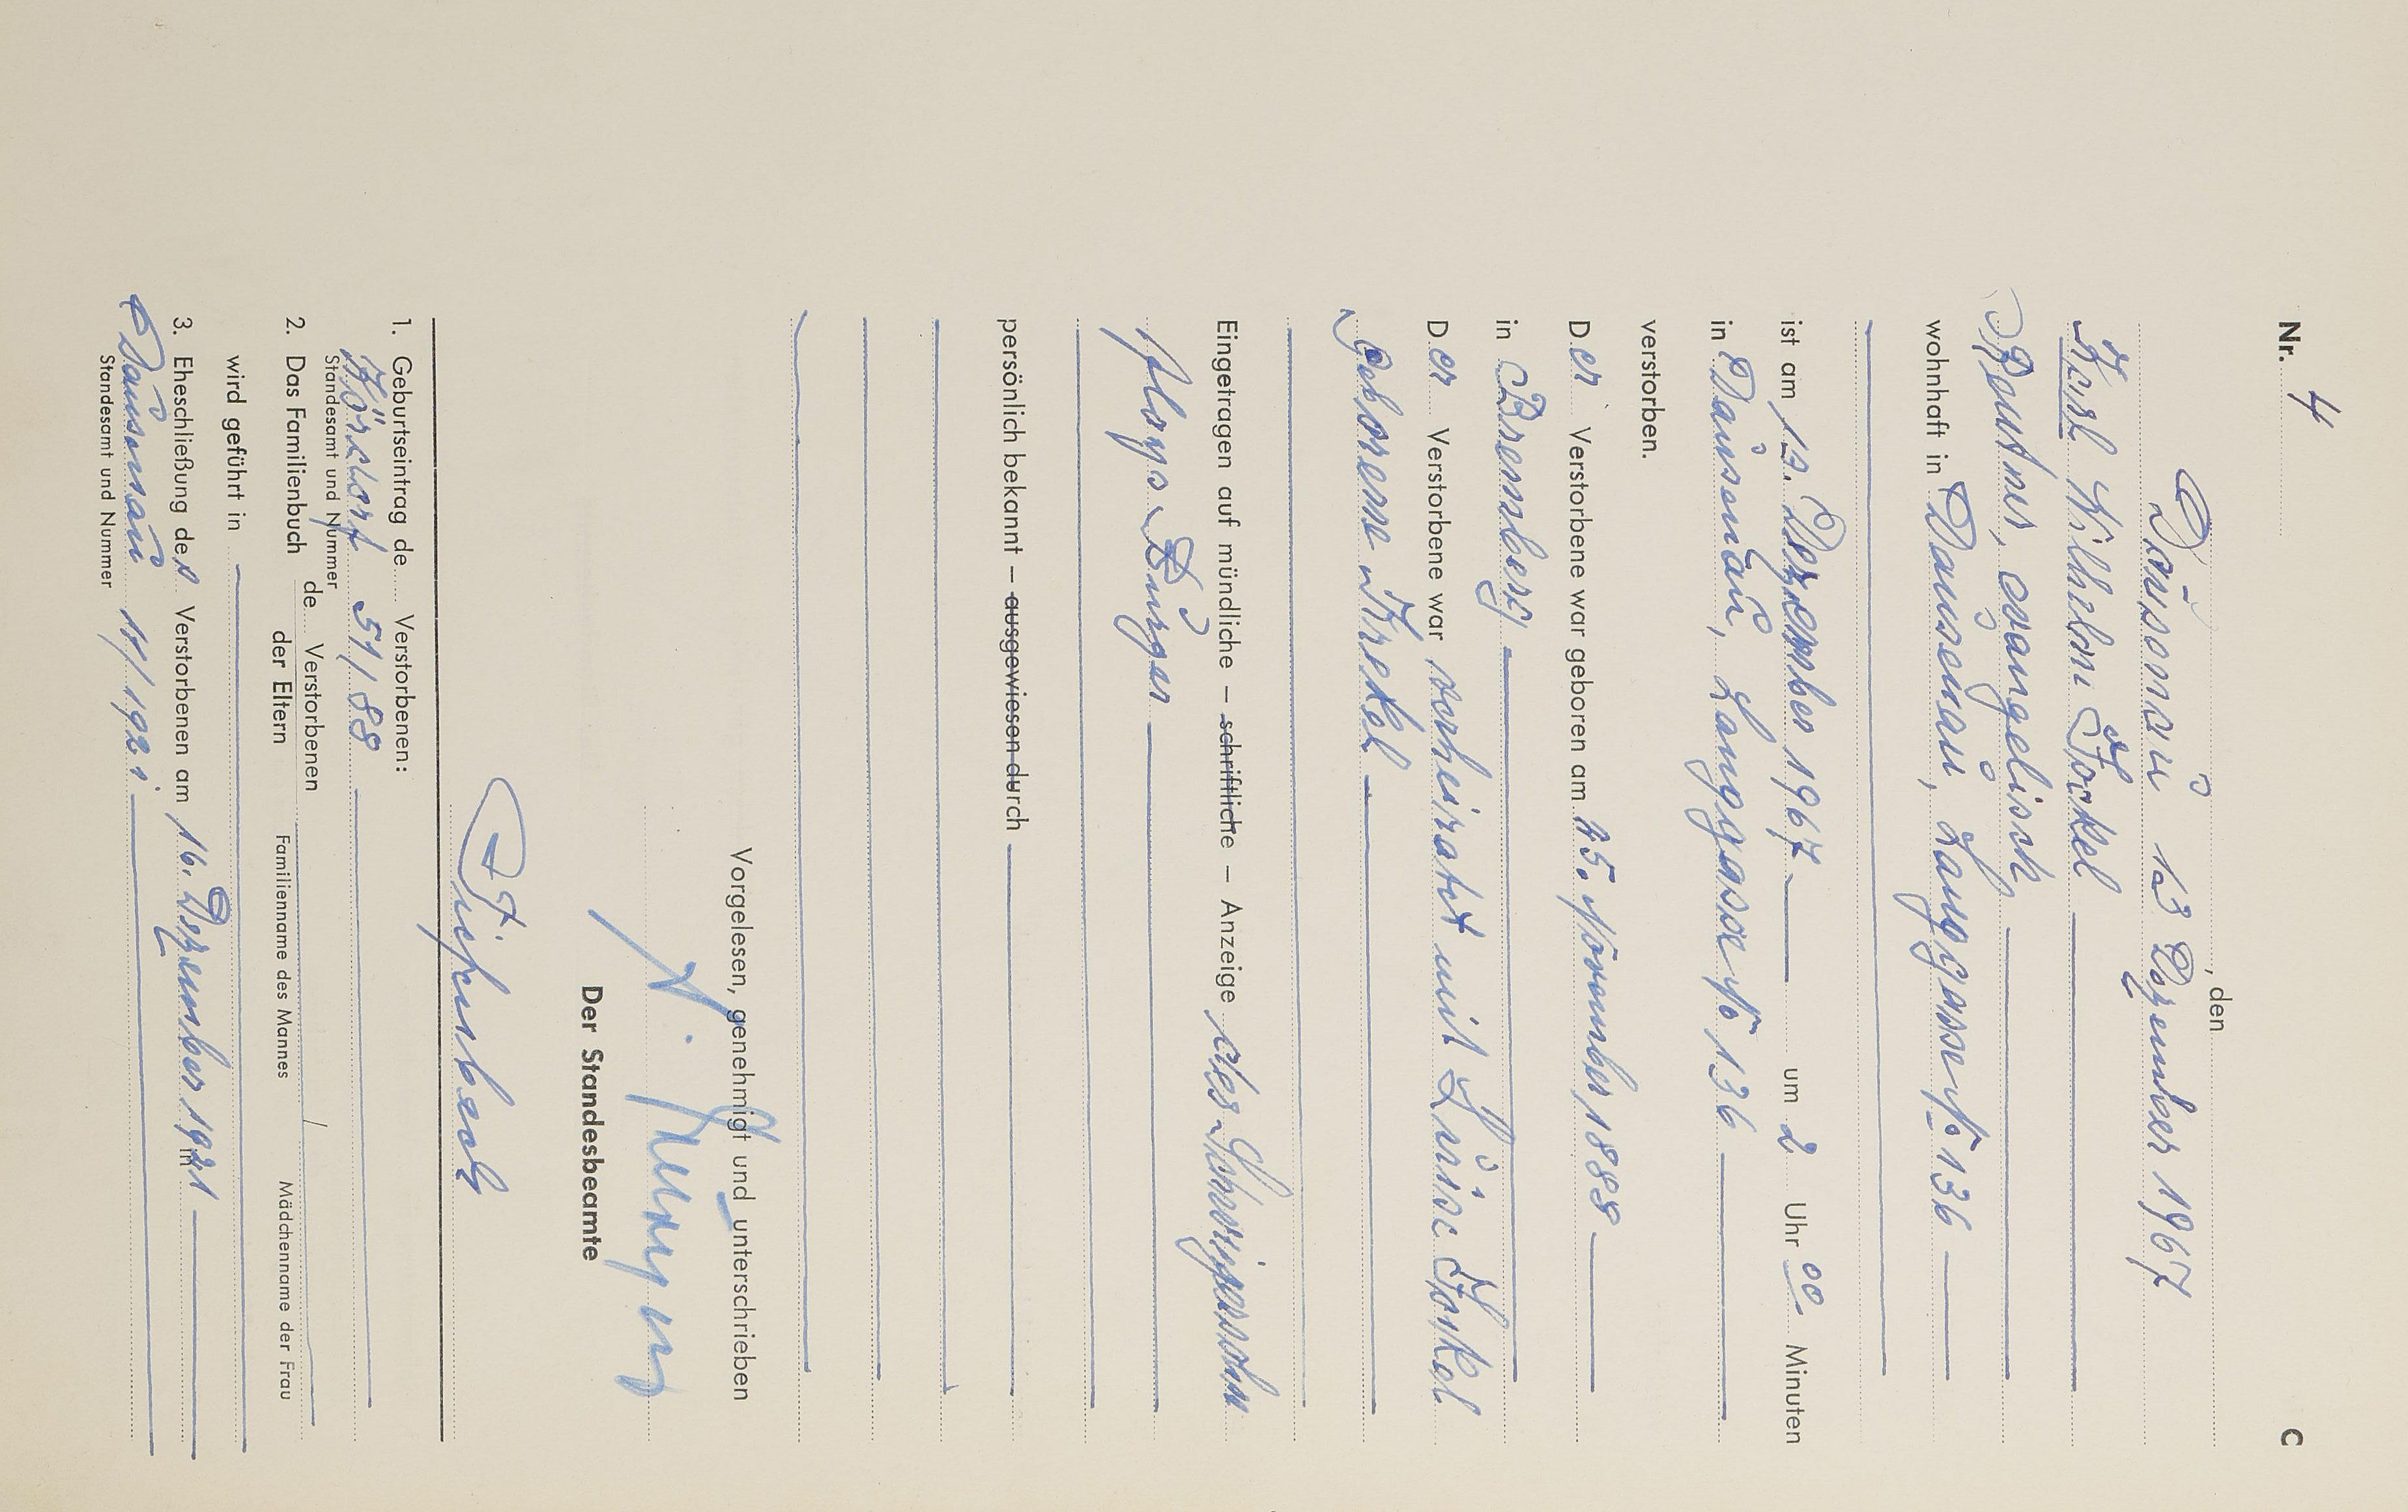 Nr. 4 C
Dausenau 13 Dezember 1967
, den
Karl Wilhelm Fockel
Rentner, evangelisch
wohnhaft in Dausenau, Langgasse No 136
ist am 13. Dezember 1967 um 2 Uhr 00 Minuten
in Dausenau, Langgasse No 136
verstorben.
Der Verstorbene war geboren am 25. November 1888
in Bremberg
Der Verstorbene war verheiratet mit Luise Fockel
geborene Krekel
Eingetragen auf mündliche – schriftliche – Anzeige des Schwiegersohn
Aloys Burger
persönlich bekannt – ausgewiesen durch
Vorgelesen, genehmigt und unterschrieben
A.
Der Standesbeamte
1. Geburtseintrag de Verstorbenen:
Kördorf 51/88
Standesamt und Nummer
2. Das Familienbuch de Verstorbenen
der Eltern Familienname des Mannes / Mädchenname der Frau
wird geführt in
3. Eheschließung des Verstorbenen am 16. Dezember 1921
im
Dausenau 11/1921
Standesamt und Nummer